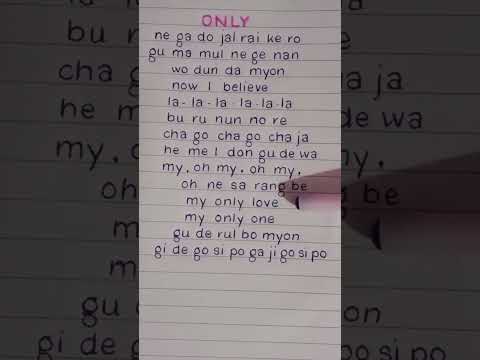 ONLY
ne ga do jal rai ke ro
gu ma mul ne ge nan
wo dun da myon
now I believe
la-la-la-la-la-la
bu ru nun no re
cha go cha go cha ja
he me I don gu de wa
my, oh my, oh my,
oh ne sa rang be
my only love
my only one
gu de rul bo myon
gi de go si po ga ji go si po